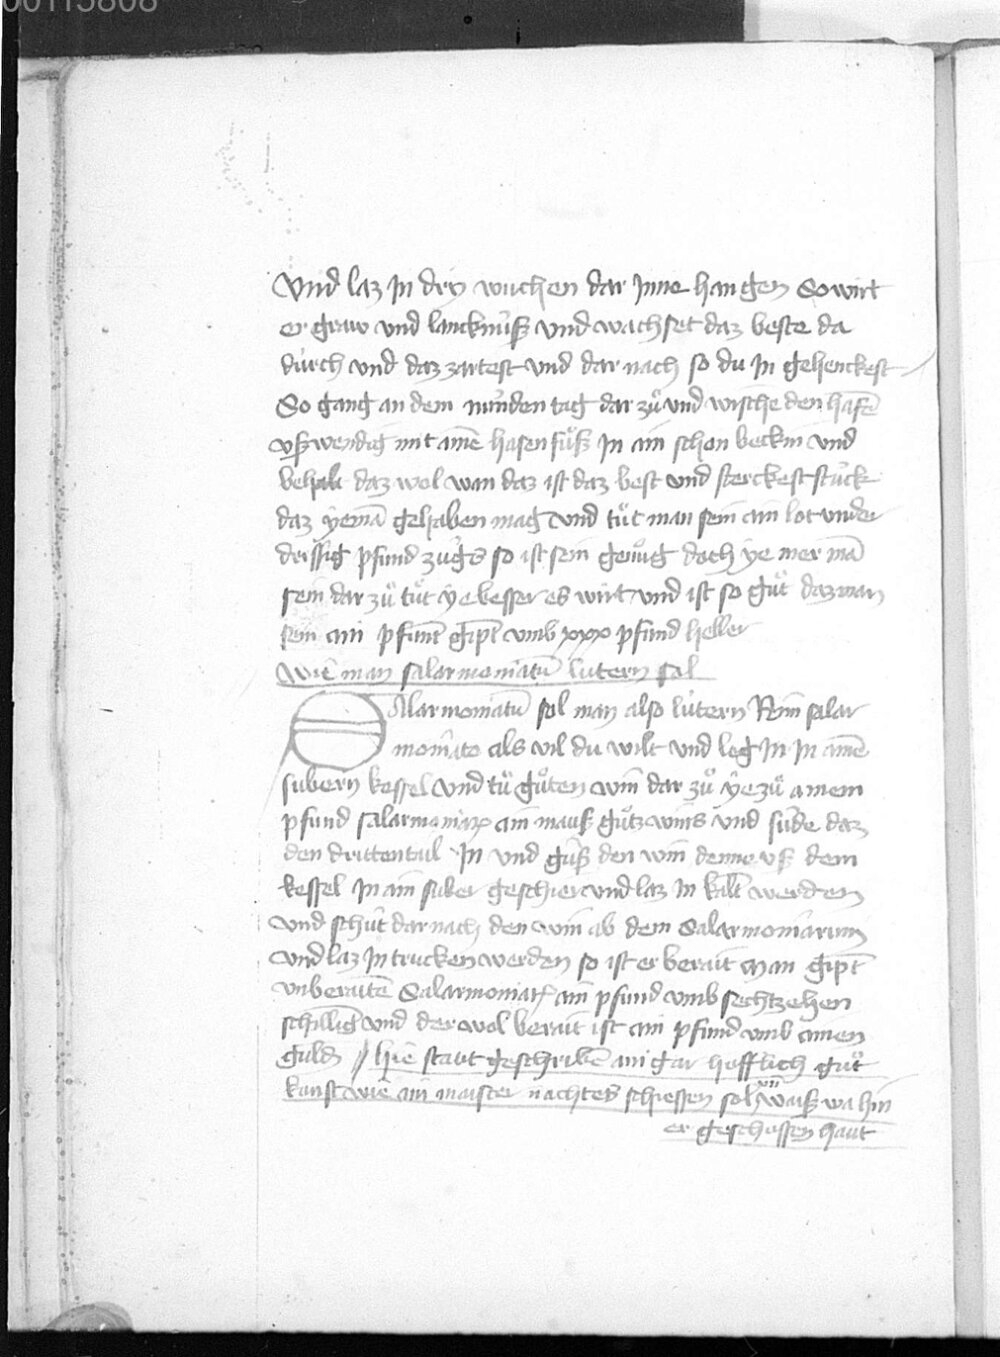 00115808
Vnd laz In dry wuchen dar Inne hangen So wirt
er graw vnd lancknüß vnd wachset daz beste da
durch vnd daz zartest vnd dar nach so du In gehenckest
So gang an dem nünden tag dar zuͦ vnd wische den hafē
vßwendig mit ainē hasen fuͦß In ain schon beckin vnd
behalt daz wol wan daz ist daz best vnd sterckest stuck
daz yemā gehaben mag vnd tuͦt man sein ain lot vnder
drissig pfund zügs so ist sein genuͦg doch ye mer mā
sein dar zuͦ tuͦt ye besser es wirt vnd ist so guͦt daz man
sein ain pfunt gipt vmb xxx pfund heller
Wie man salarmoniatū lutern sol
Salarmoniatū sol man also lutern Nim salar
moniato als vil du wilt vnd leg In In ainē
subern kessel vnd tuͦ guͦten win dar zuͦ ye zuͦ ainem
pfund salarmoniax ain mauß guͦtz wins vnd sude daz
den drittentail In vnd guß den win denne vß dem
kessel In ain suber geschier vnd laz In kalt werden
vnd schüt dar nach den win ab dem Salarmoniarum
vnd laz In trucken werden so ist er berait man gipt
vnberaitē Salarmoniax ain pfund vmb sechtzehen
schillig vnd der wol berait ist ain pfund vmb ainen
guldn // hie staut geschribē ain gar hofflich guͦt
kunst wie ain maister nachtes schiessen sol waiß wa hin
er geschossen haut